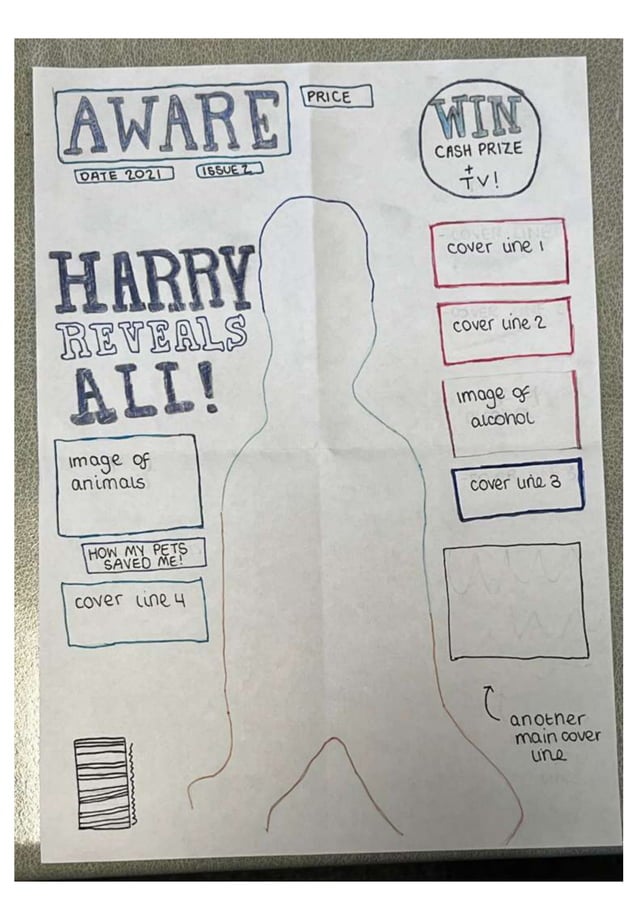 AWARE
PRICE
DATE 2021
ISSUE 2
WIN
CASH PRIZE
+
TV!
HARRY
REVEALS
ALL!
cover line 1
cover line 2
image of
alcohol
cover line 3
image of
animals
HOW MY PETS
SAVED ME!
cover line 4
another
main cover
line